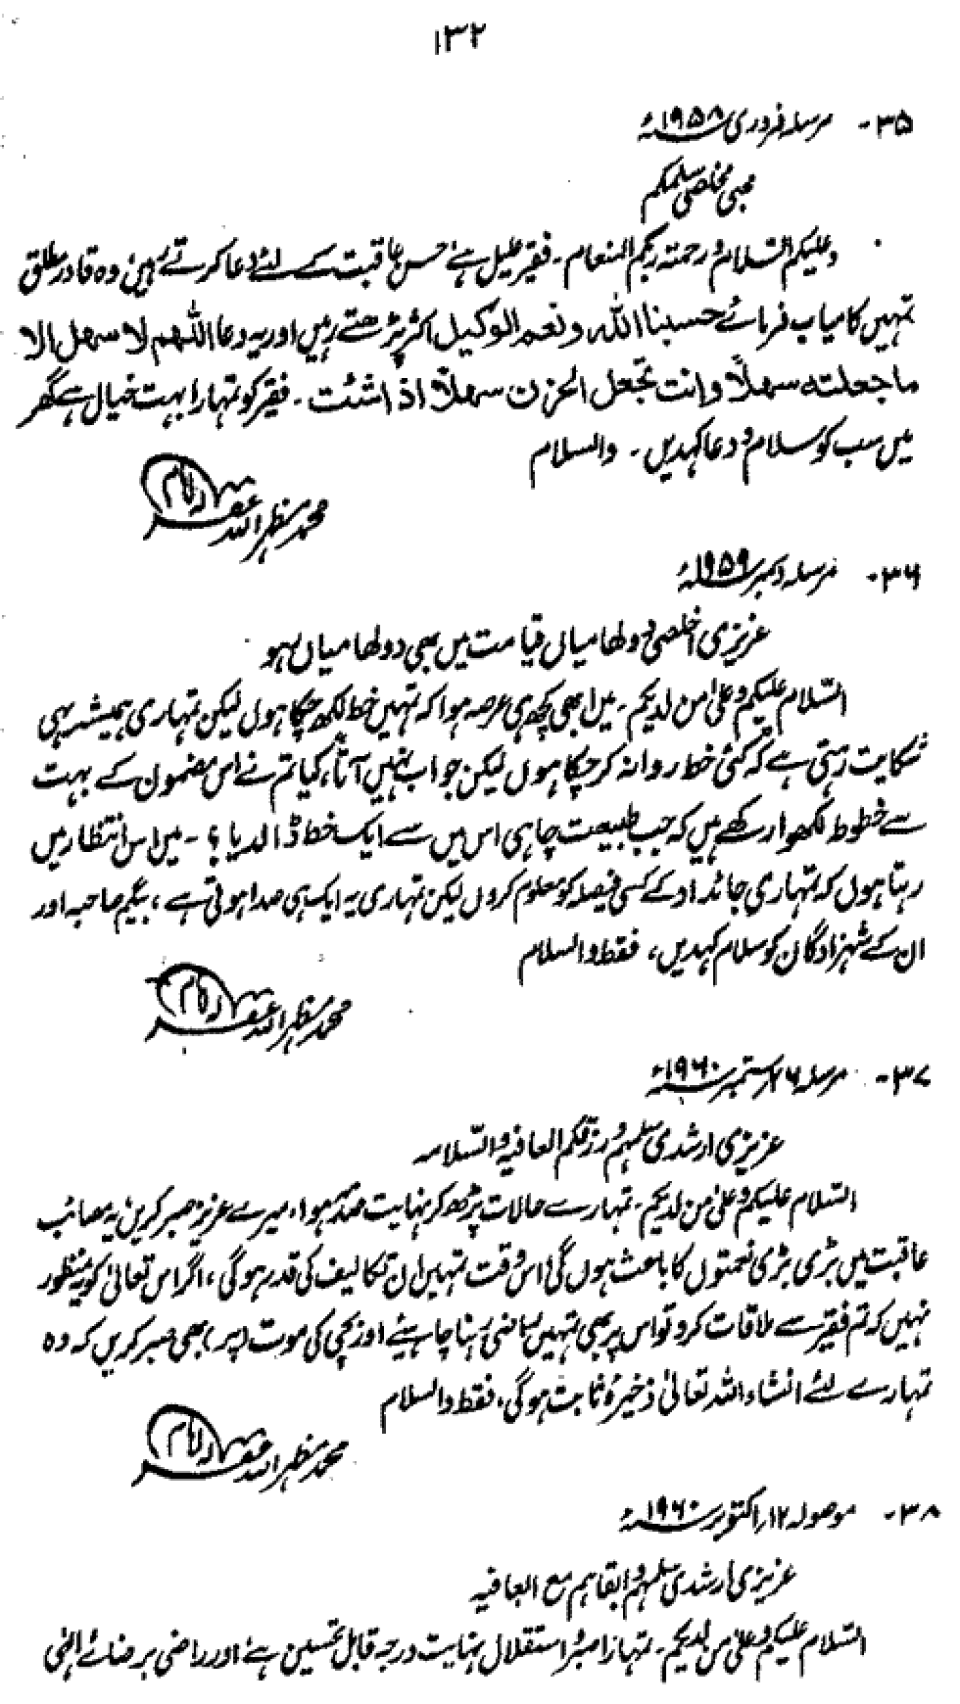 ۱۳۲
۳۵- مرسلہ فروری ۱۹۵۸ء
محبی مخلصی سلمکم
وعلیکم السلام ورحمتہ ربکم المنعام۔ فقیر علیل ہے حسن عاقبت کے لئے دعا کرتے رہیں وہ قادر مطلق
تمہیں کامیاب فرمائے حسبنا اللہ ونعم الوکیل اکثر پڑھتے رہیں اور یہ دعا اللھم لا سھل الا
ما جعلتہ سھلاً وانت تجعل الحزن سھلاً اذا شئت۔ فقیر کو تمہارا بہت خیال ہے گھر
میں سب کو سلام و دعا کہدیں۔ والسلام
محمد مظہر اللہ غفرلہ الامام
۳۶- مرسلہ دسمبر ۱۹۵۹ء
عزیزی اخلصی دولھا میاں قیامت میں بھی دولھا میاں ہو
السّلام علیکم وعلیٰ من لدیکم۔ میں ابھی کچھ ہی عرصہ ہوا کہ تمہیں خط لکھ چکا ہوں لیکن تمہاری ہمیشہ یہی
شکایت رہتی ہے کہ کئی خط روانہ کر چکا ہوں لیکن جواب نہیں آتا، کیا تم نے اس مضمون کے بہت
سے خطوط لکھوا رکھے ہیں کہ جب طبیعت چاہی اس میں سے ایک خط ڈالدیا؟۔ میں اس انتظار میں
رہتا ہوں کہ تمہاری جائداد کے کسی فیصلہ کو معلوم کروں لیکن تمہاری یہ ایک ہی صدا ہوتی ہے، بیگم صاحبہ اور
ان کے شہزادگان کو سلام کہدیں، فقط والسلام
محمد مظہر اللہ غفرلہ الامام
۳۷- مرسلہ ۲۶ ستمبر ۱۹۶۰ء
عزیزی ارشدی سلمہم ورزقکم العافیہ والسّلامہ
السّلام علیکم وعلیٰ من لدیکم۔ تمہارے حالات پڑھ کر نہایت صدمہ ہوا، میرے عزیز صبر کریں یہ مصائب
عاقبت میں بڑی بڑی نعمتوں کا باعث ہوں گی اس وقت تمہیں ان تکالیف کی قدر ہوگی، اگر اس تعالیٰ کو یہ منظور
نہیں کہ تم فقیر سے ملاقات کرو تو اس پر بھی تمہیں راضی رہنا چاہیئے اور بچی کی موت (پر) بھی صبر کریں کہ وہ
تمہارے لئے انشاء اللہ تعالیٰ ذخیرہ ثابت ہوگی، فقط والسلام
محمد مظہر اللہ غفرلہ الامام
۳۸- موصولہ ۱۲ اکتوبر ۱۹۶۰ء
عزیزی ارشدی سلمہم وابقاہم مع العافیہ
السّلام علیکم وعلیٰ من لدیکم۔ تمہارا صبر و استقلال نہایت درجہ قابل تحسین ہے اور راضی برضائے الٰہی